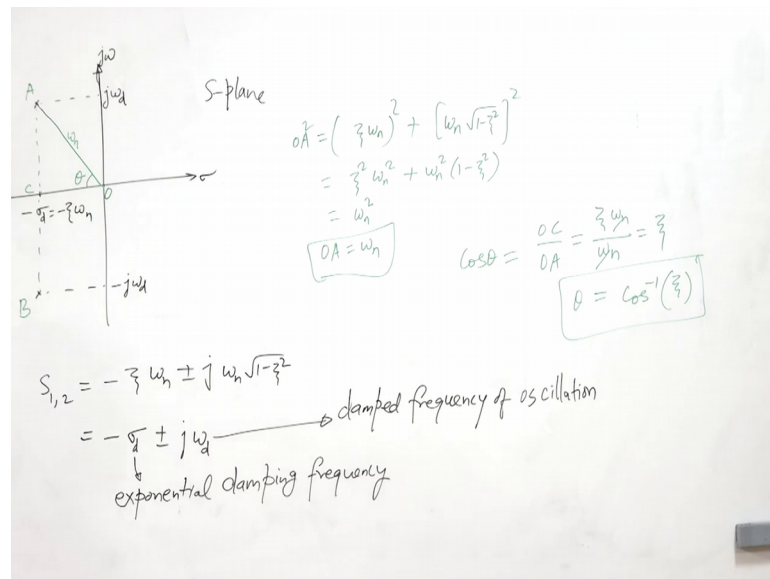 jω
A
jωd
S-plane
ωn
θ
C
O
σ
-σd = -ξωn
B
-jωd
OA² = (ξωn)² + [ωn√1-ξ²]²
= ξ²ωn² + ωn²(1-ξ²)
= ωn²
OA = ωn
Cosθ = OC/OA = ξωn/ωn = ξ
θ = Cos⁻¹(ξ)
S1,2 = -ξωn ± jωn√1-ξ²
= -σd ± jωd → damped frequency of oscillation
exponential damping frequency